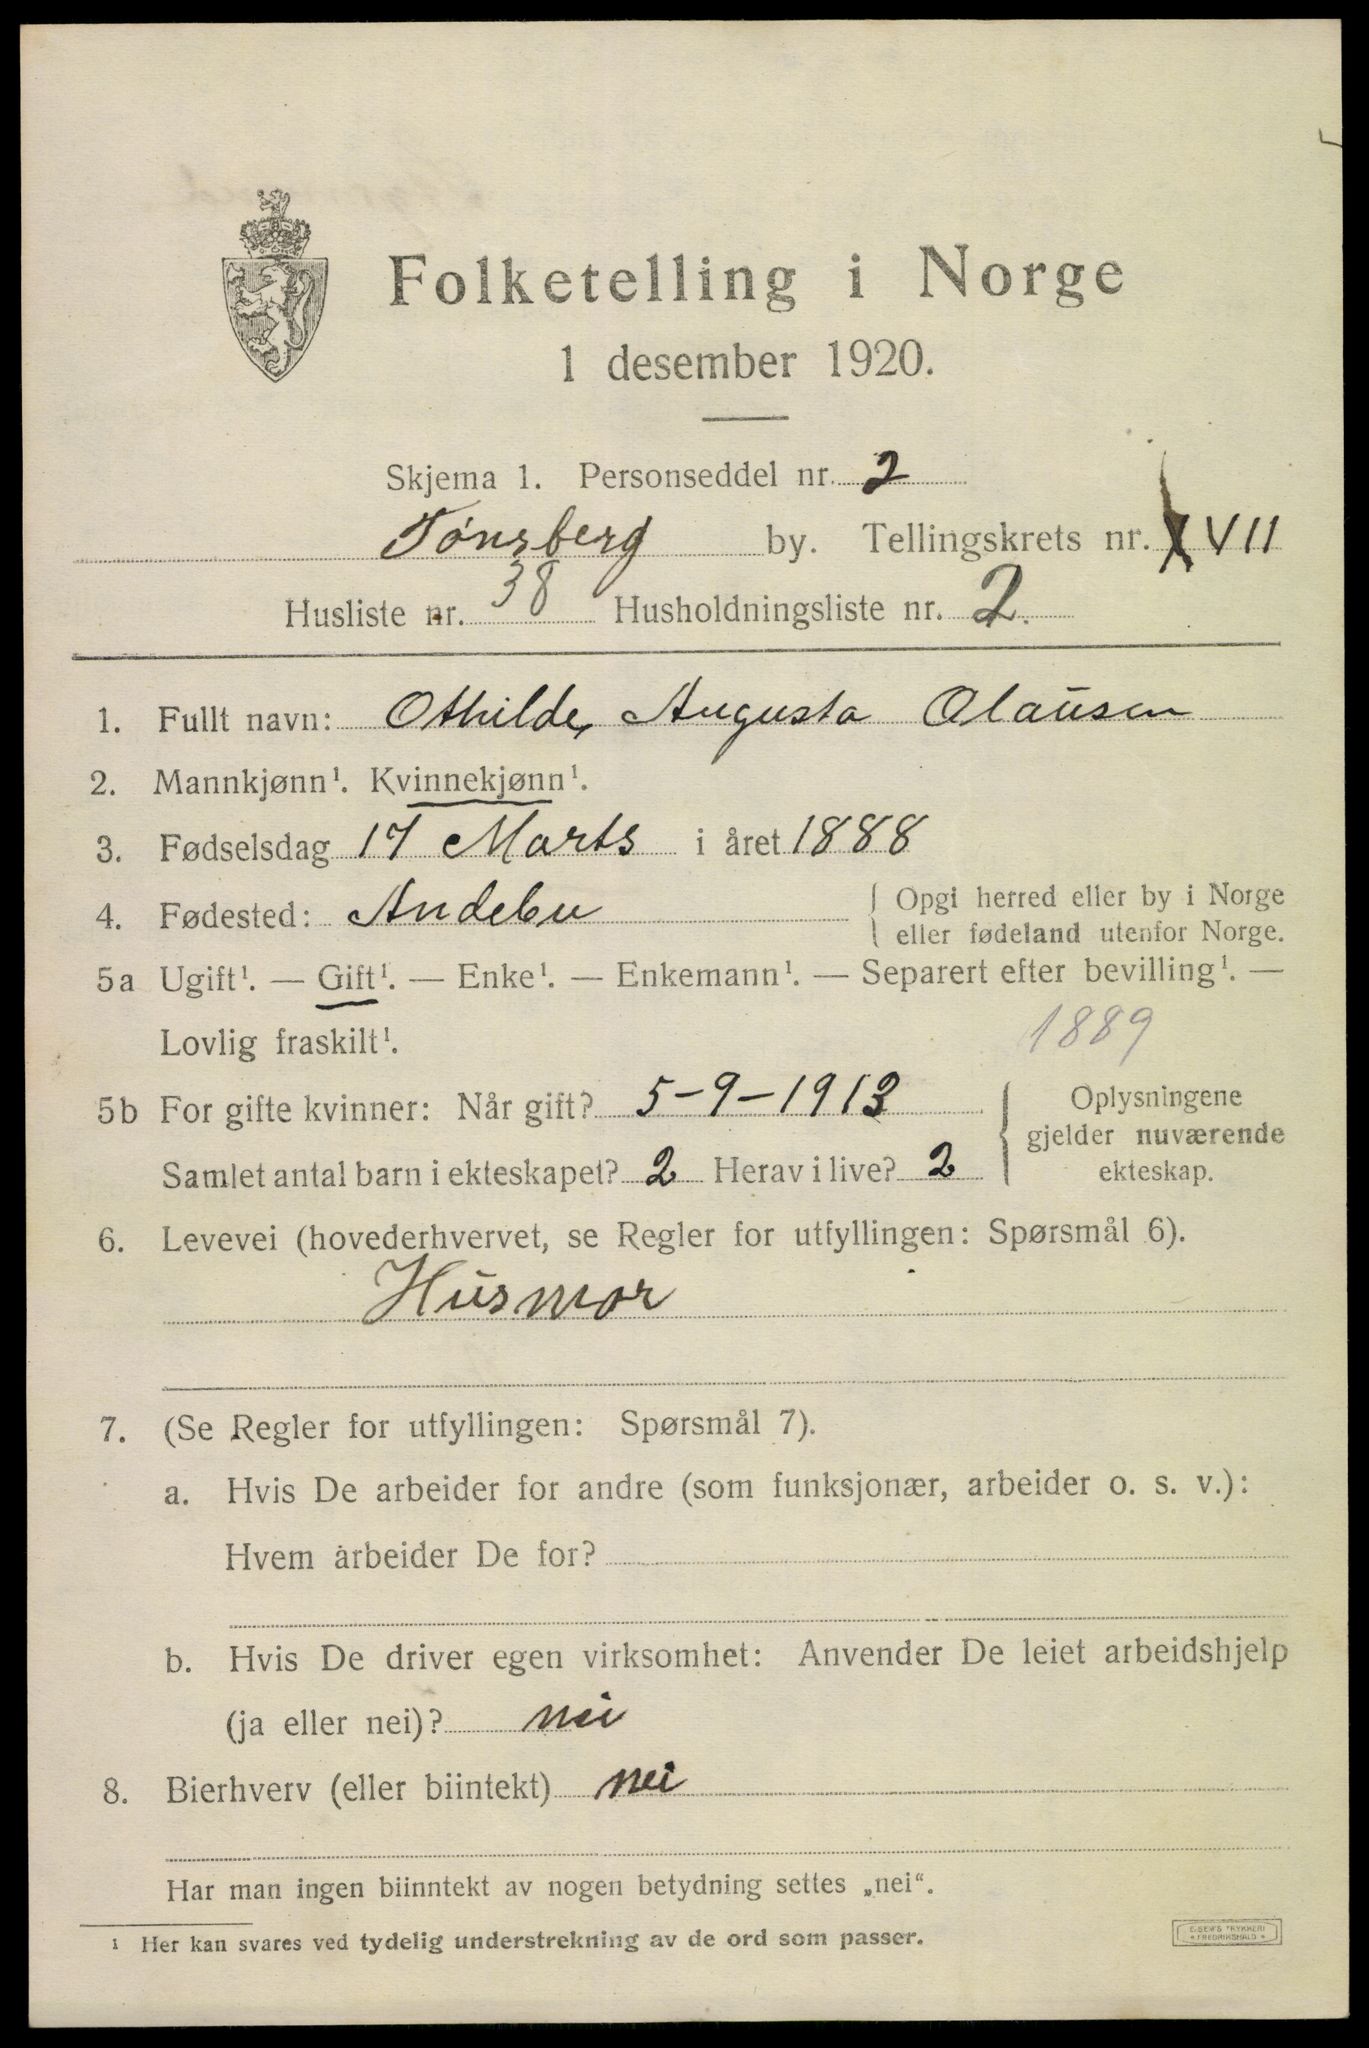 Folketelling i Norge
1 desember 1920.
Skjema 1. Personseddel nr. 2
Tönsberg by. Tellingskrets nr. XVII
Husliste nr. 38 Husholdningsliste nr. 2.
1. Fullt navn: Othilde, Augusta Olausen
2. Mannkjønn¹. Kvinnekjønn¹.
3. Fødselsdag 17 Marts i året 1888
4. Fødested: Andebu { Opgi herred eller by i Norge
eller fødeland utenfor Norge.
5a Ugift¹. — Gift¹. — Enke¹. — Enkemann¹. — Separert efter bevilling¹. —
Lovlig fraskilt¹. 1889
5b For gifte kvinner: Når gift? 5-9-1913
Samlet antal barn i ekteskapet? 2 Herav i live? 2
{ Oplysningene
gjelder nuværende
ekteskap.
6. Levevei (hovederhvervet, se Regler for utfyllingen: Spørsmål 6).
Husmor
7. (Se Regler for utfyllingen: Spørsmål 7).
a. Hvis De arbeider for andre (som funksjonær, arbeider o. s. v.):
Hvem arbeider De for?
b. Hvis De driver egen virksomhet: Anvender De leiet arbeidshjelp
(ja eller nei)? nei
8. Bierhverv (eller biintekt) nei
Har man ingen biinntekt av nogen betydning settes „nei“.
¹ Her kan svares ved tydelig understrekning av de ord som passer.
E. SEM'S TRYKKERI
* FREDRIKSHALD *